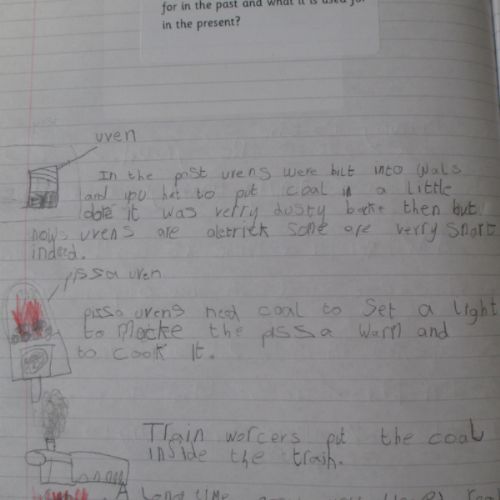 for in the past and what it is used for
in the present?
uven
In the past uvens were bilt into wals
and you het to put coal in a little
dore it was verry dusty backe then but
nows uvens are alectrick some are verry smart
indeed.
pissa uven
pissa uvens need coal to Set a light
to Macke the pissa warm and
to cook It.
Train worcers put the coal
inside the train.
A long time